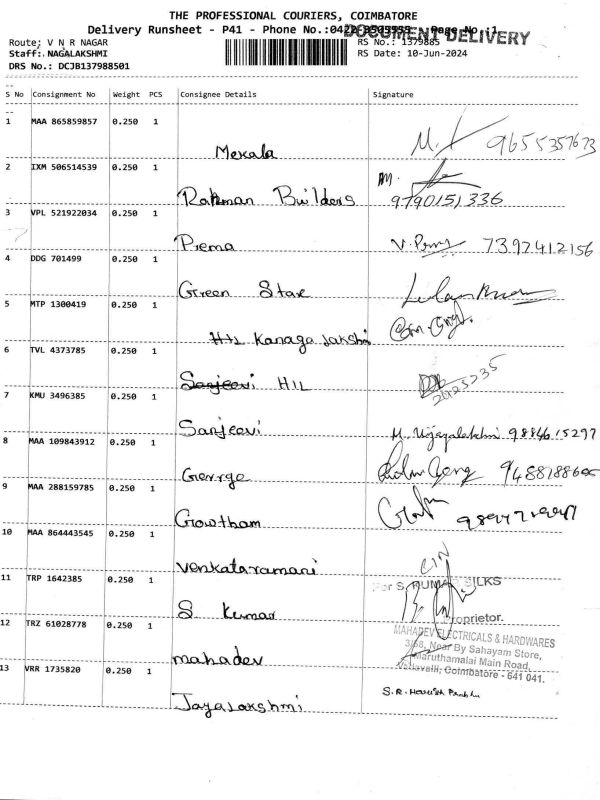 THE PROFESSIONAL COURIERS, COIMBATORE
Delivery Runsheet - P41 - Phone No.: Page No.:1
DOCUMENT DELIVERY
Route: V N R NAGAR RS No.: 1379885
Staff: NAGALAKSHMI RS Date: 10-Jun-2024
DRS No.: DCJB137988501
S No Consignment No Weight PCS Consignee Details Signature
1 MAA 865859857 0.250 1
Mekala 9655357673
2 IXM 506514539 0.250 1
Rahman Builders 9790151336
3 VPL 521922034 0.250 1
Prema 7397412156
4 DDG 701499 0.250 1
Green Star
5 MTP 1300419 0.250 1
HIL Kanaga Lakshmi
6 TVL 4373785 0.250 1
Sanjeevi HIL
7 KMU 3496385 0.250 1
Sanjeevi M. Vijayalakshmi 9884615297
8 MAA 109843912 0.250 1
George
9 MAA 288159785 0.250 1
Gowtham
10 MAA 864443545 0.250 1
Venkataramani
11 TRP 1642385 0.250 1
For S. KUMAR SILKS
S Kumar
Proprietor.
12 TRZ 61028778 0.250 1
mahadev
MAHADEV ELECTRICALS & HARDWARES
3/68, Near By Sahayam Store,
Maruthamalai Main Road,
Coimbatore - 641 041.
13 VRR 1735820 0.250 1
Jayalakshmi S.R. Harish Prabhu